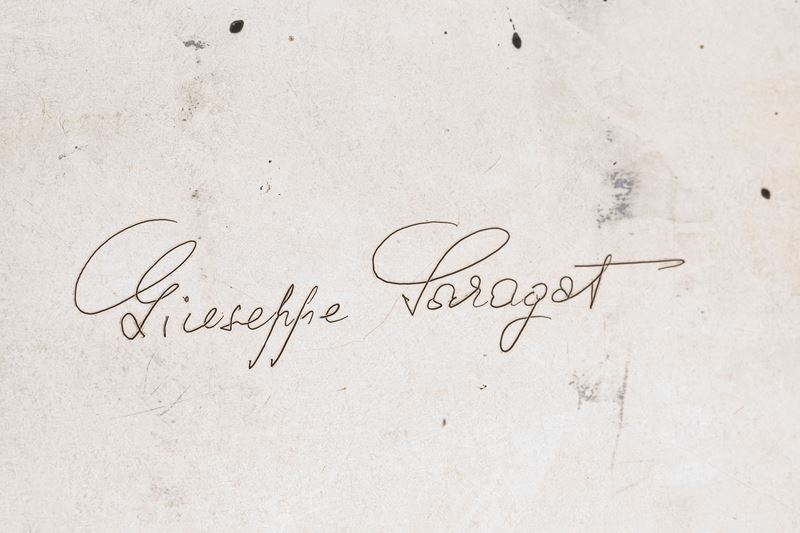 Giuseppe Saragat